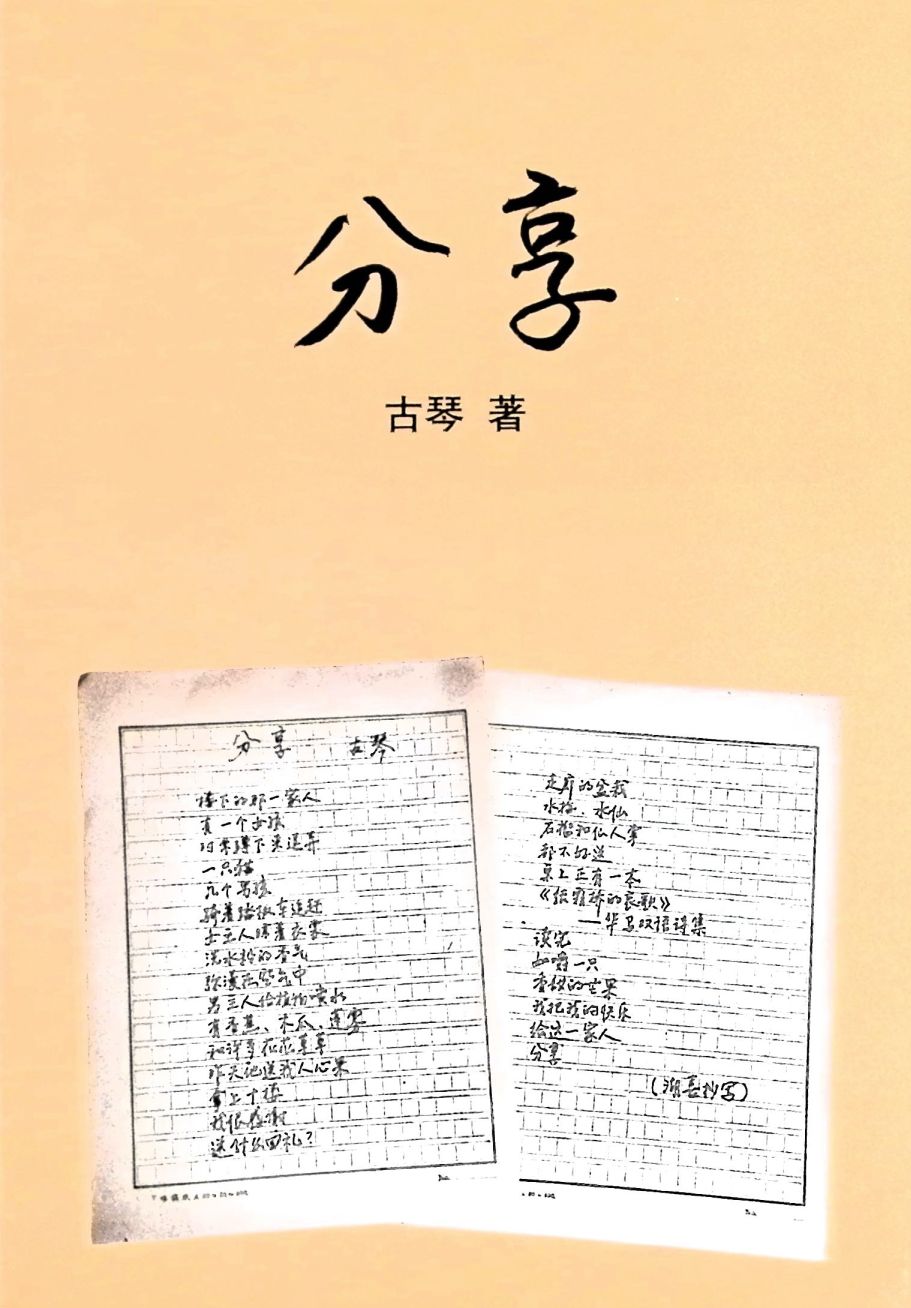 分享
古琴 著
分享 古琴
楼下的那一家人
有一个女孩
时常蹲下来逗弄
一只猫
几个男孩
骑着踏板车追赶
女主人晾着衣裳
洗水粉的香气
弥漫在空气中
男主人给植物喷水
有香蕉、木瓜、莲雾
和许多花花草草
昨天他送我人心果
拿上十楼
我很感谢
送什么回礼?
走廊的盆栽
水梅、水仙
石榴和仙人掌
都不好送
桌上正有一本
的哀歌》
——华马双语诗集
读完
如嚼一只
香甜的芒果
我把我的快乐
给这一家人
分享